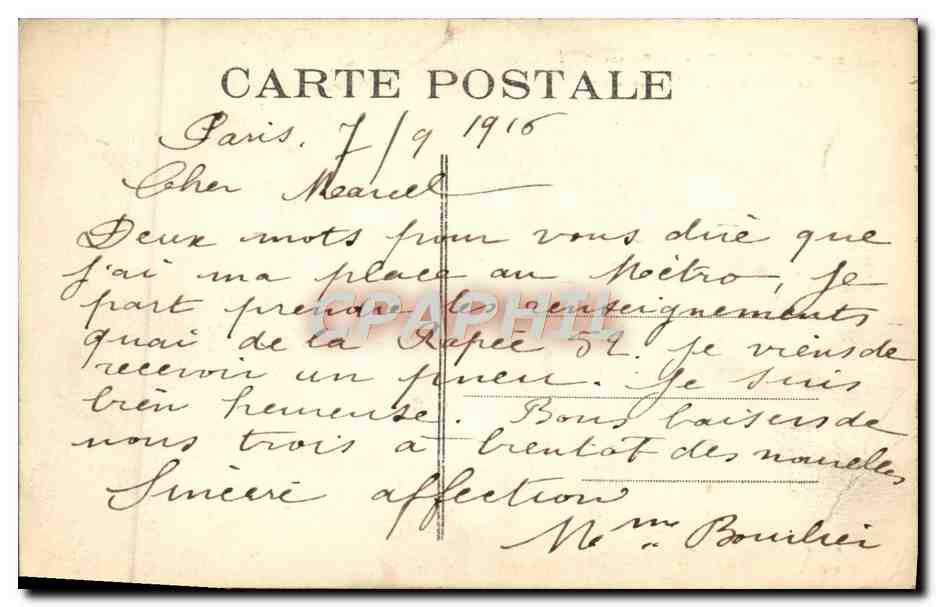 CARTE POSTALE
Paris. 7/9 1916
Cher Marcel
Deux mots pour vous dire que
j'ai ma place au Métro, je
part prendre les renseignements
CPAPHIL
quai de la Rapée 52. je viens de
recevoir un pneu. Je suis
bien heureuse. Bons baisers de
nous trois à bientot des nouvelles
Sincère affection
Mme